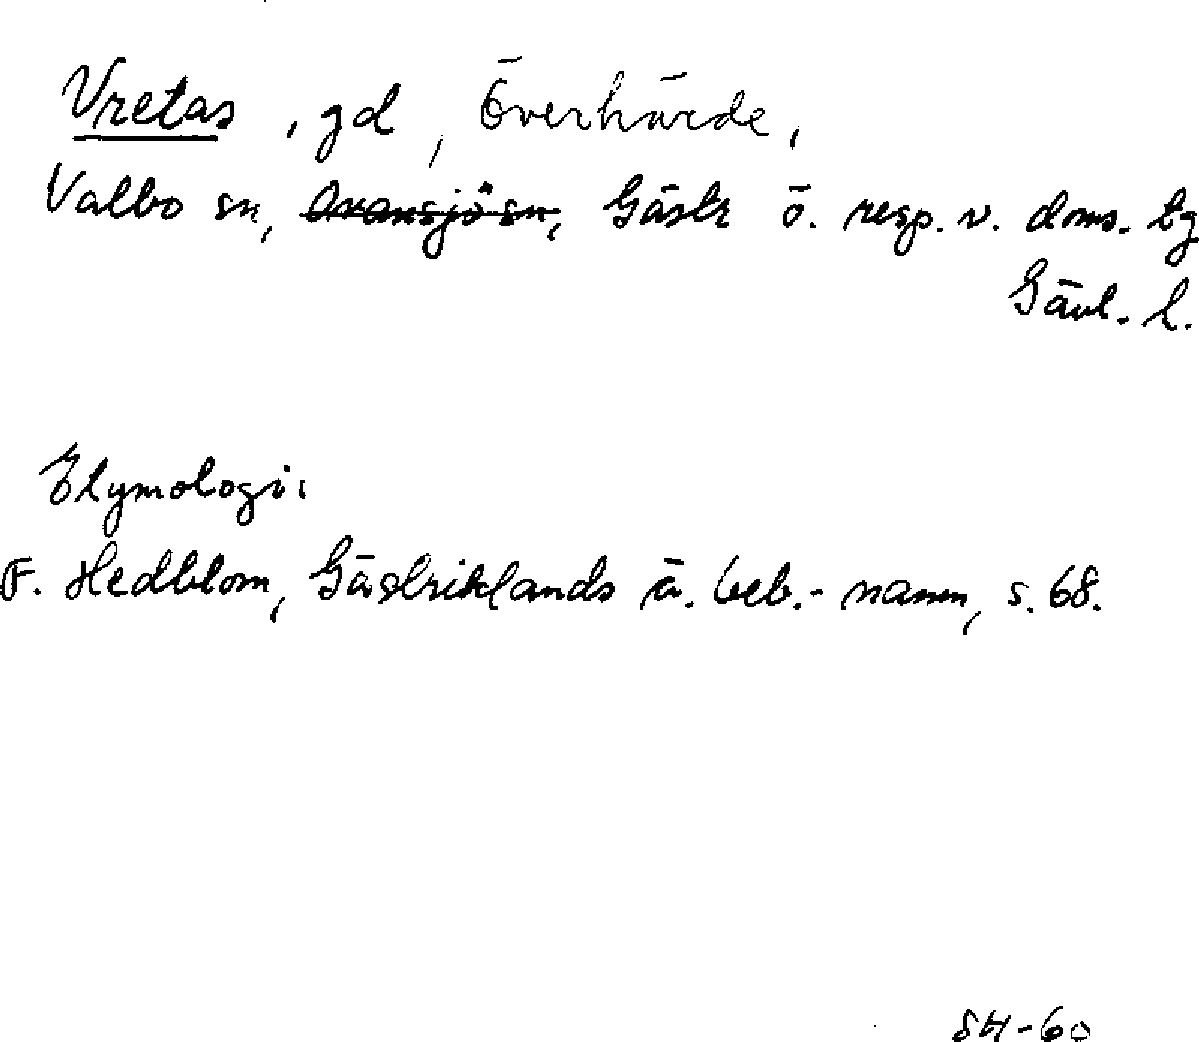 Vretas, gd, Överhärde,
Valbo sn, Ovansjö sn, Gästr ö. resp. v. doms. tg
Gävl. l.
Etymologi:
F. Hedblom, Gästriklands ä. beb.-namn, s. 68.
SH-60